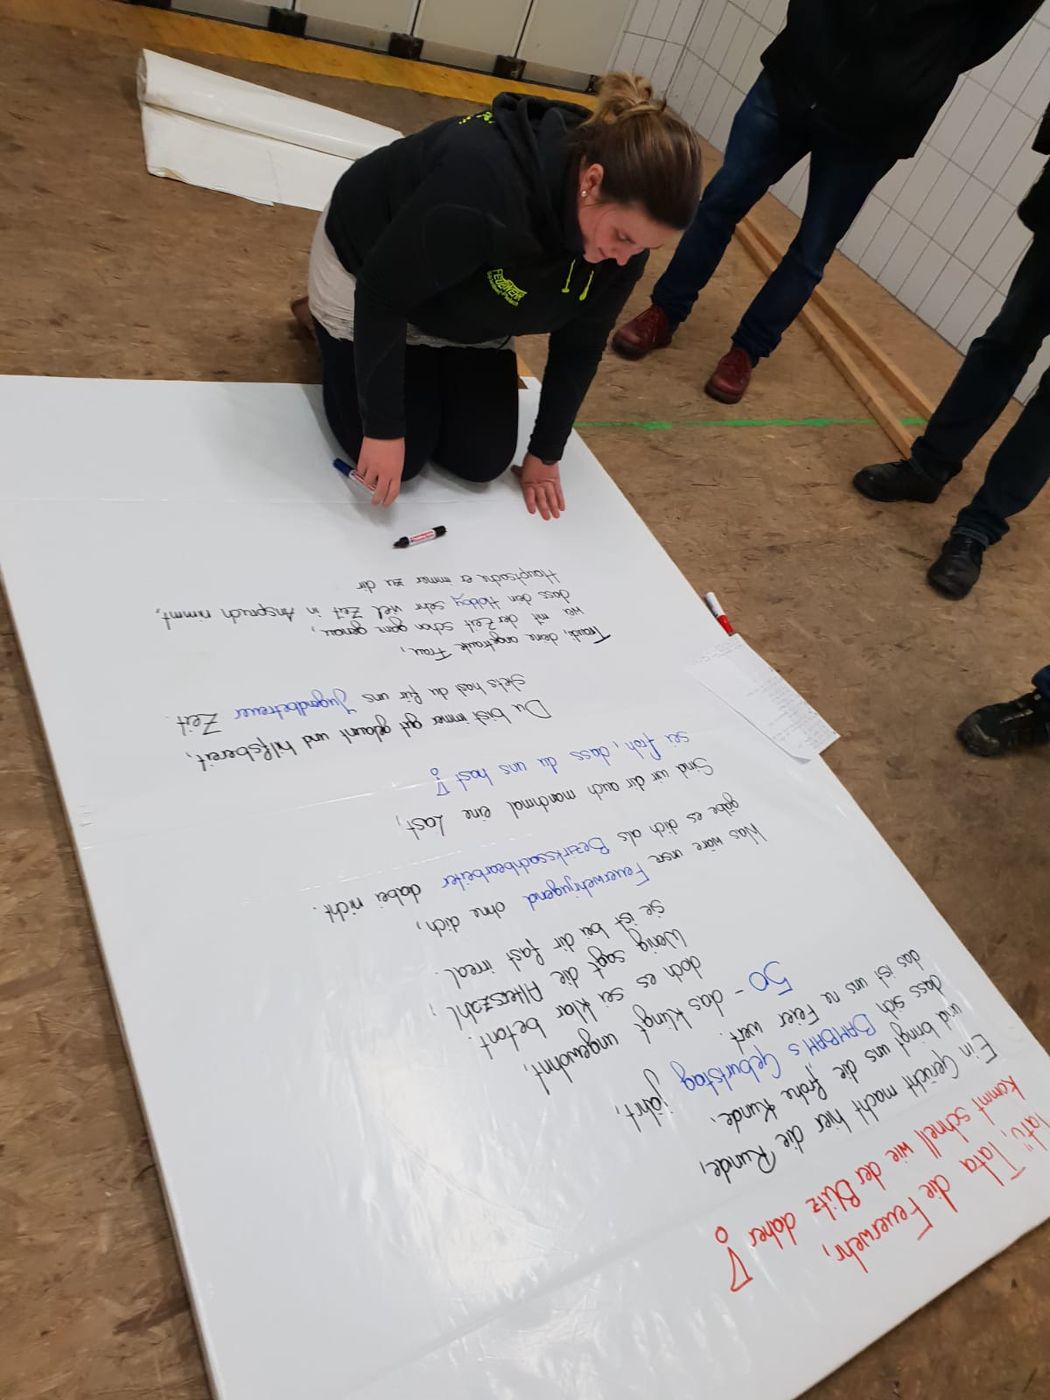 Tatü, Tata die Feuerwehr,
kommt schnell wie der Blitz daher!
Ein Gerücht macht hier die Runde,
und bringt uns die frohe Kunde,
dass sich BAMBAM's Geburtstag jährt,
das ist uns ne Feier wert.
50 - das klingt ungewohnt,
doch es sei klar betont:
Wenig sagt die Alterszahl,
sie ist bei dir fast irreal.
Was wäre unsre Feuerwehrjugend ohne dich,
gäbe es dich als Bezirkssachbearbeiter dabei nicht.
Sind wir dir auch manchmal eine Last,
sei froh, dass du uns hast!
Du bist immer gut gelaunt und hilfsbereit,
stets hast du für uns Jugendbetreuer Zeit.
Traudi, deine angetraute Frau,
wie mit der Zeit schon ganz genau,
dass dein Hobby sehr viel Zeit in Anspruch nimmt,
Hauptsache er immer zu dir
FEUERWEHR